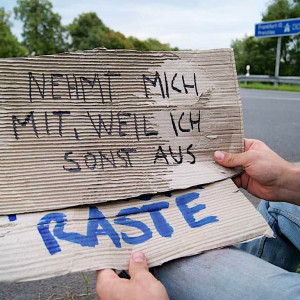 NEHMT MICH
MIT, WEIL ICH
SONST AUS
RASTE
Frankfurt
Prenzlau